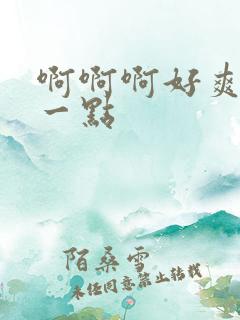 啊啊啊好爽
一點
陌桑雪
未任同意禁止转载